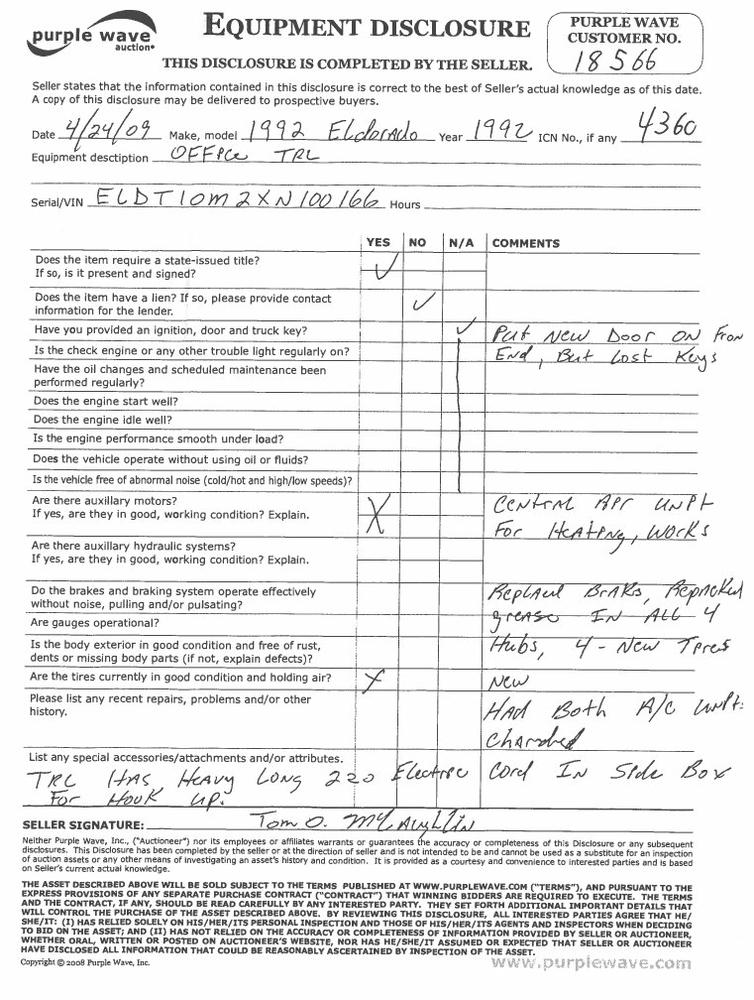 purple wave
auction
EQUIPMENT DISCLOSURE
THIS DISCLOSURE IS COMPLETED BY THE SELLER.
PURPLE WAVE
CUSTOMER NO.
18566
Seller states that the information contained in this disclosure is correct to the best of Seller's actual knowledge as of this date.
A copy of this disclosure may be delivered to prospective buyers.
Date 4/24/09 Make, model 1992 Eldorado Year 1992 ICN No., if any 4360
Equipment desctiption OFFICE TRL
Serial/VIN ELDT10M2XN100166 Hours
YES NO N/A COMMENTS
Does the item require a state-issued title?
If so, is it present and signed?
Does the item have a lien? If so, please provide contact
information for the lender.
Have you provided an ignition, door and truck key? Put New Door ON Fron
Is the check engine or any other trouble light regularly on? End, But Lost Keys
Have the oil changes and scheduled maintenance been
performed regularly?
Does the engine start well?
Does the engine idle well?
Is the engine performance smooth under load?
Does the vehicle operate without using oil or fluids?
Is the vehicle free of abnormal noise (cold/hot and high/low speeds)?
Are there auxillary motors? Central AIR UNIT
If yes, are they in good, working condition? Explain. For Heating, Works
Are there auxiliary hydraulic systems?
If yes, are they in good, working condition? Explain.
Do the brakes and braking system operate effectively Brakes, Repacked
without noise, pulling and/or pulsating? grease IN ALL 4
Are gauges operational?
Is the body exterior in good condition and free of rust, Hubs, 4 - New Tires
dents or missing body parts (if not, explain defects)?
Are the tires currently in good condition and holding air? New
Please list any recent repairs, problems and/or other Had Both A/C Unit
history.
List any special accessories/attachments and/or attributes.
TRL Has Heavy Long 220 Electric Cord In Side Box
For Hook up.
SELLER SIGNATURE: Tom O. McLaughlin
Neither Purple Wave, Inc., ("Auctioneer") nor its employees or affiliates warrants or guarantees the accuracy or completeness of this Disclosure or any subsequent
disclosures. This Disclosure has been completed by the seller or at the direction of seller and is not intended to be and cannot be used as a substitute for an inspection
of auction assets or any other means of investigating an asset's history and condition. It is provided as a courtesy and convenience to interested parties and is based
on Seller's current actual knowledge.
THE ASSET DESCRIBED ABOVE WILL BE SOLD SUBJECT TO THE TERMS PUBLISHED AT WWW.PURPLEWAVE.COM ("TERMS"), AND PURSUANT TO THE
EXPRESS PROVISIONS OF ANY SEPARATE PURCHASE CONTRACT ("CONTRACT") THAT WINNING BIDDERS ARE REQUIRED TO EXECUTE. THE TERMS
AND THE CONTRACT, IF ANY, SHOULD BE READ CAREFULLY BY ANY INTERESTED PARTY. THEY SET FORTH ADDITIONAL IMPORTANT DETAILS THAT
WILL CONTROL THE PURCHASE OF THE ASSET DESCRIBED ABOVE. BY REVIEWING THIS DISCLOSURE, ALL INTERESTED PARTIES AGREE THAT HE/
SHE/IT: (I) HAS RELIED SOLELY ON HIS/HER/ITS PERSONAL INSPECTION AND THOSE OF HIS/HER/ITS AGENTS AND INSPECTORS WHEN DECIDING
TO BID ON THE ASSET; AND (II) HAS NOT RELIED ON THE ACCURACY OR COMPLETENESS OF INFORMATION PROVIDED BY SELLER OR AUCTIONEER,
WHETHER ORAL, WRITTEN OR POSTED ON AUCTIONEER'S WEBSITE, NOR HAS HE/SHE/IT ASSUMED OR EXPECTED THAT SELLER OR AUCTIONEER
HAVE DISCLOSED ALL INFORMATION THAT COULD BE REASONABLY ASCERTAINED BY INSPECTION OF THE ASSET.
Copyright © 2008 Purple Wave, Inc.
www.purplewave.com